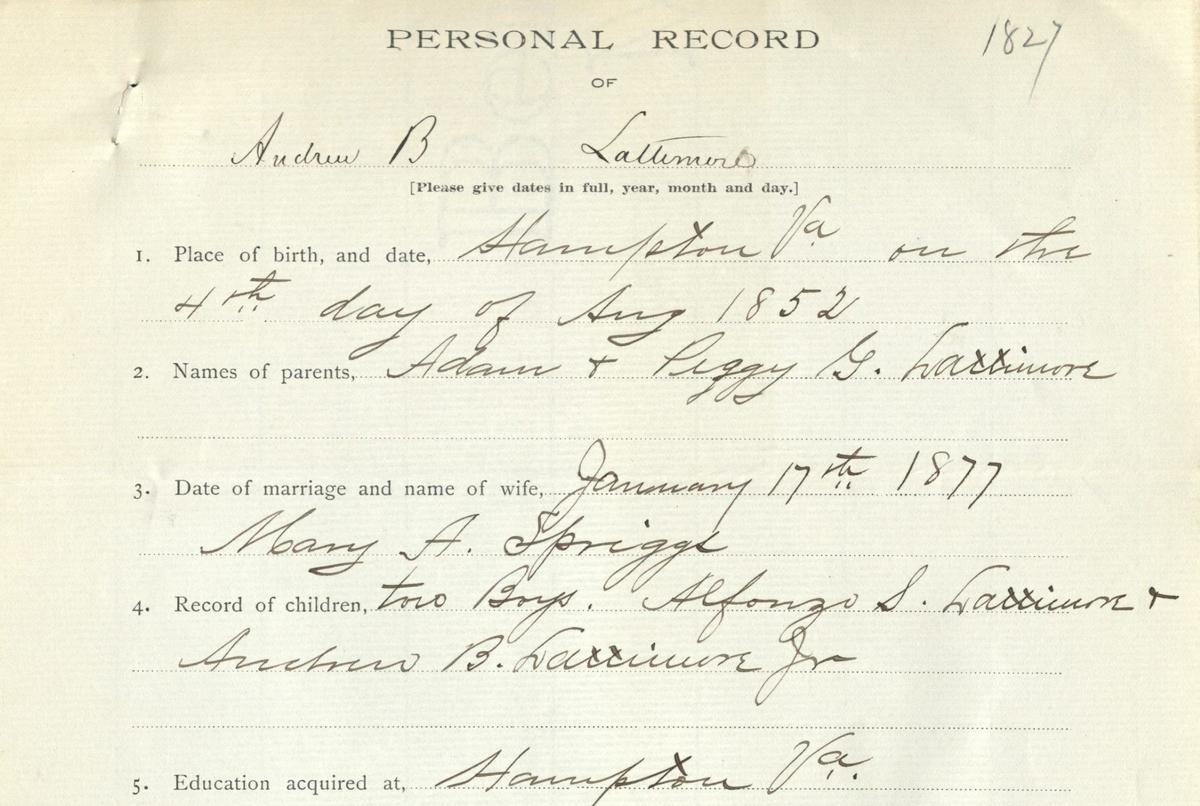 PERSONAL RECORD 1827
OF
Andrew B Lattimore
[Please give dates in full, year, month and day.]
1. Place of birth, and date, Hampton Va on the
4th day of Aug 1852
2. Names of parents, Adam & Peggy G. Lattimore
3. Date of marriage and name of wife, January 17th 1877
Mary A. Spriggs
4. Record of children, two Boys. Alfonzo S. Lattimore &
Andrew B. Lattimore Jr
5. Education acquired at, Hampton Va.